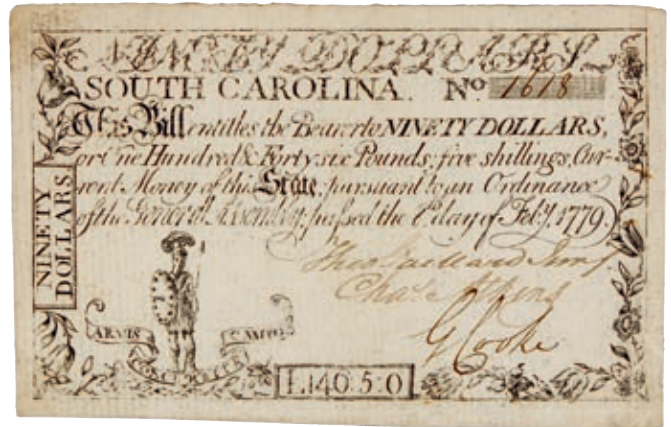 NINETY DOLLARS
SOUTH CAROLINA. No. 1618
This Bill entitles the Bearer to NINETY DOLLARS,
or One Hundred & Forty six Pounds, five shillings, Cur-
rent Money of this State, pursuant to an Ordinance
of the General Assembly, passed the 8th day of Feby. 1779.
NINETY
DOLLARS
Chas. Atkins
G Cooke
ARMIS
CAMOE
£.140:5:0